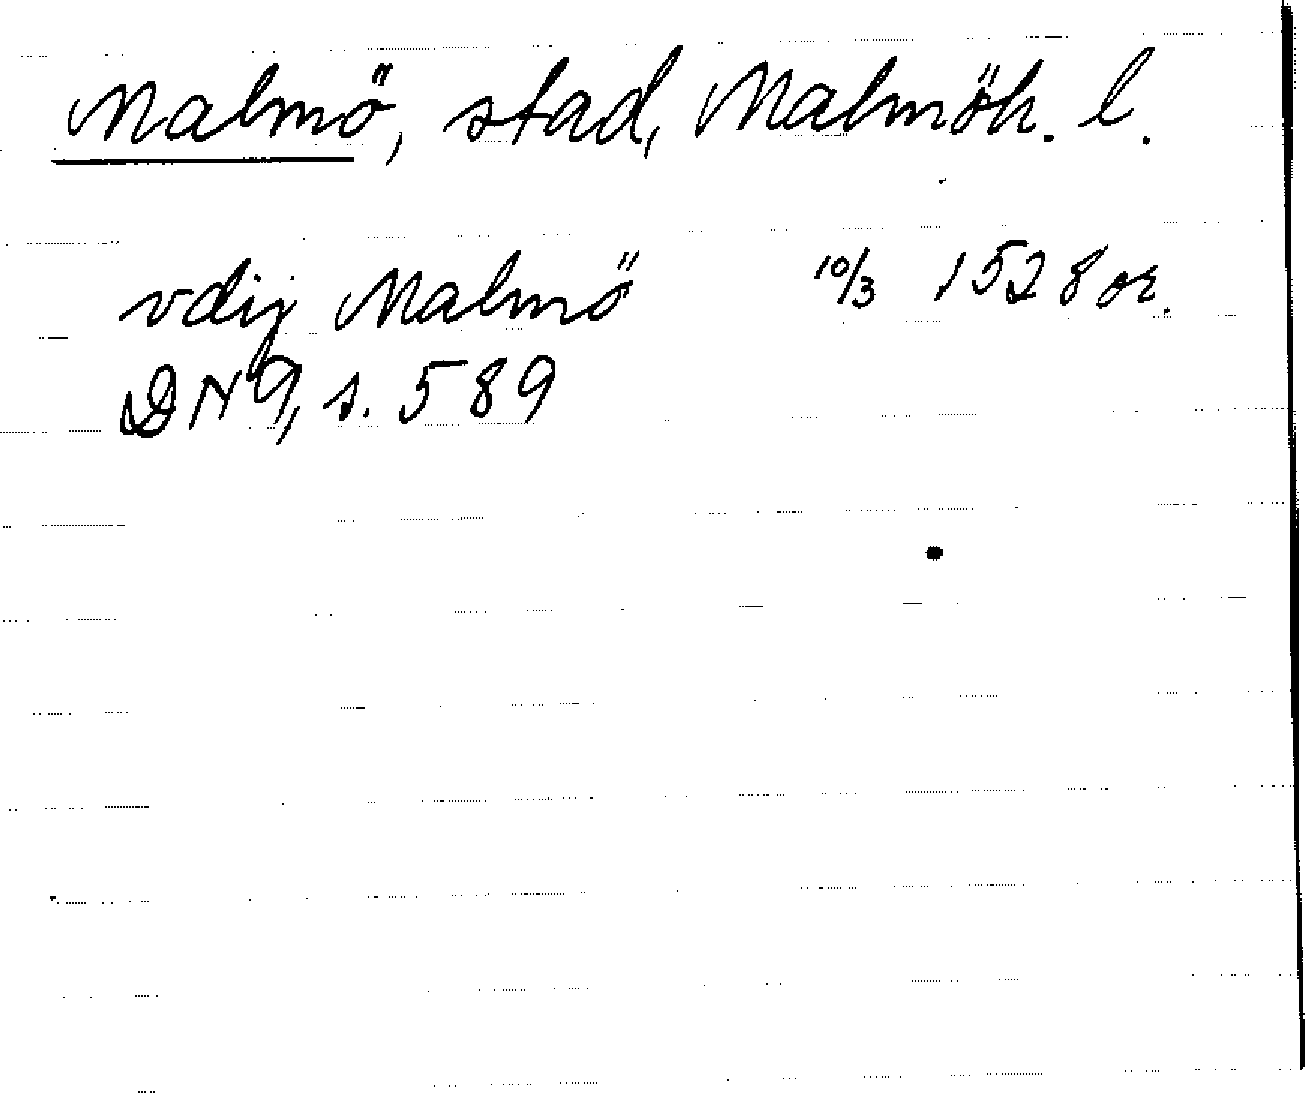 Malmö, stad, Malmöh. l.
vdij Malmö 10/3 1528 or.
DN 9, s. 589